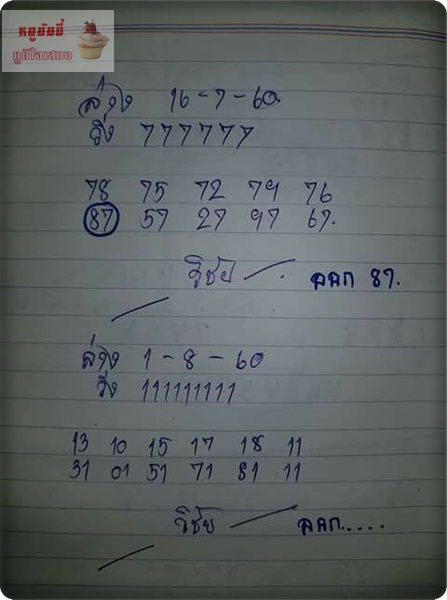 หมูมัมมี่
มูมิใจเสมอ
ล่าง 16-7-60
วิ่ง 777777
78 75 72 79 76
87 57 27 97 67.
วิชัย ออก 87.
ล่าง 1-8-60
วิ่ง 111111111
13 10 15 17 18 11
31 01 51 71 81 11
วิชัย ออก.....